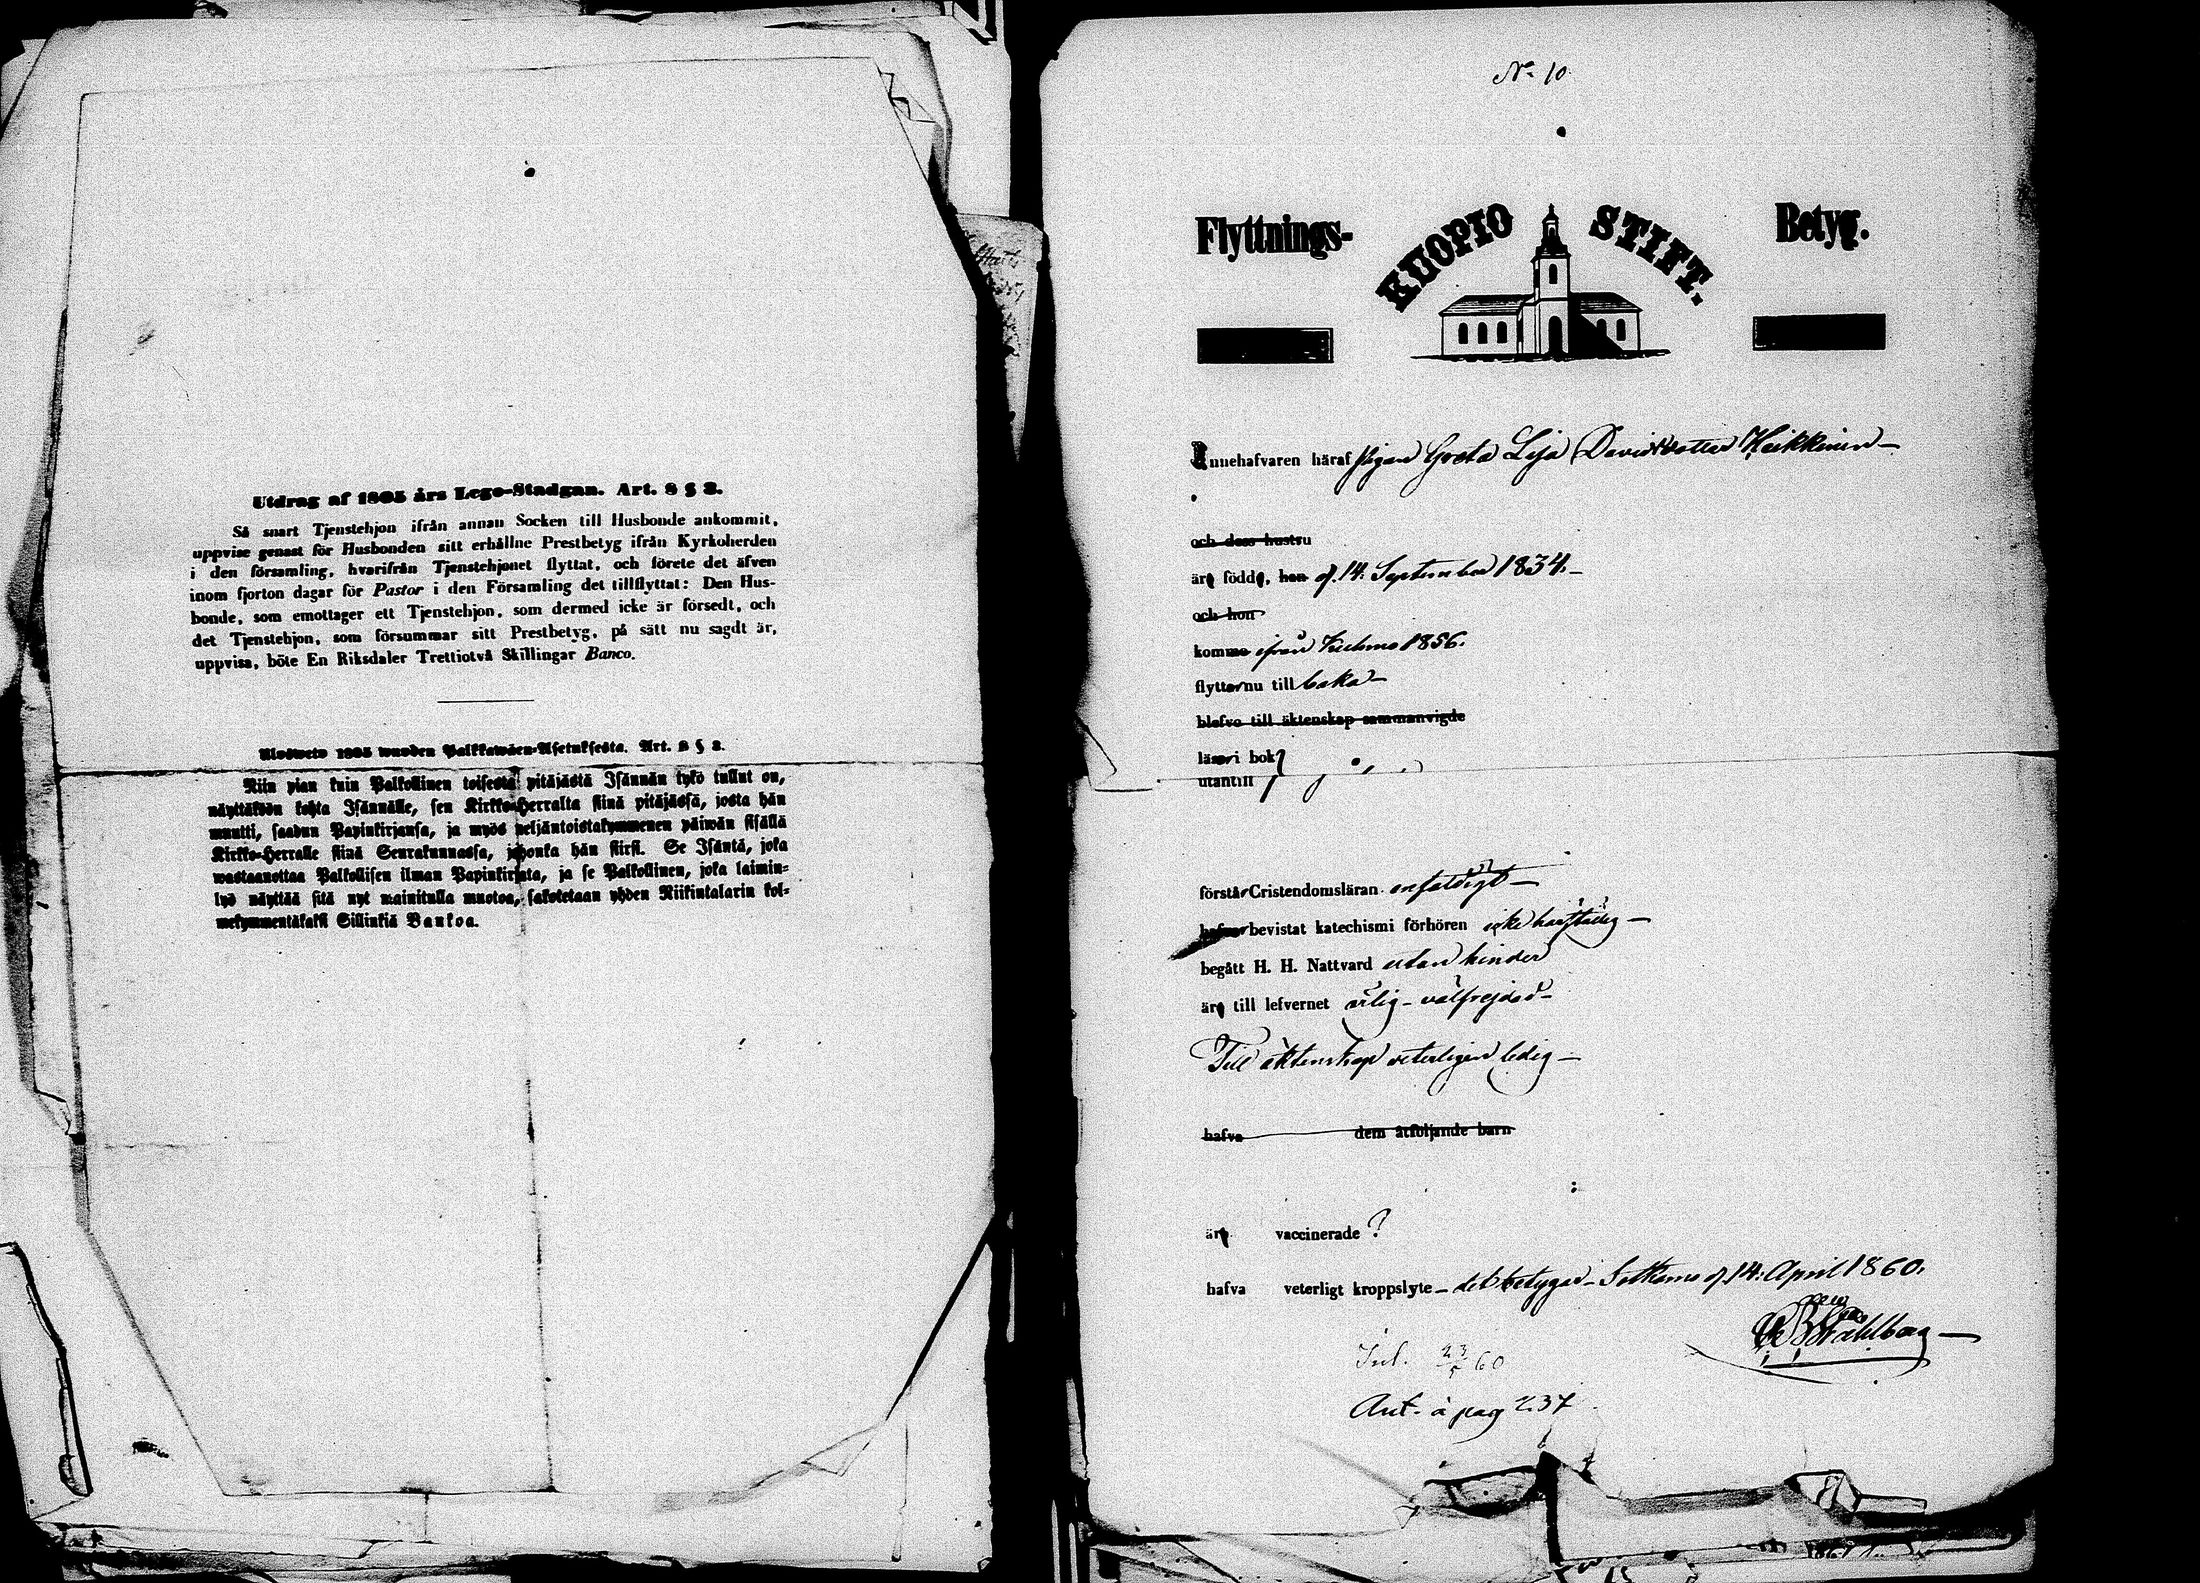 Utdrag af 1805 års Lego-Stadgan. Art. 8 § 3.
Så snart Tjenstehjon ifrån annan Socken till Husbonde ankommit,
uppvise genast för Husbonden sitt erhållne Prestbetyg ifrån Kyrkoherden
i den församling, hvarifrån Tjenstehjonet flyttat, och förete det äfven
inom fjorton dagar för Pastor i den Församling det tillflyttat: Den Hus-
bonde, som emottager ett Tjenstehjon, som dermed icke är försedt, och
det Tjenstehjon, som försummar sitt Prestbetyg, på sätt nu sagdt är,
uppvisa, böte En Riksdaler Trettiotvå Skillingar Banco.
Ulosweto 1805 wuoden Palkkawäen-Asetuksesta. Art. 8 § 3.
Niin pian kuin Palkollinen toisesta pitäjästä Isännän tykö tullut on,
näyttäköön kohta Isännälle, sen Kirkko-Herralta siinä pitäjässä, josta hän
muutti, saadun Papinkirjansa, ja myös neljäntoistakymmenen päiwän sisällä
Kirkko-Herralle siinä Seurakunnassa, johonka hän siirsi. Se Isäntä, joka
wastaanottaa Palkollisen ilman Papinkirjata, ja se Palkollinen, joka laimin-
lyö näyttää sitä nyt mainitulla muotoa, sakotetaan yhden Riikintalarin kol-
mekymmentäkaksi Sillinkiä Bankoa.
No 10
Flyttnings- KUOPIO STIFT. Betyg.
Innehafvaren häraf pigan Greta Lisa Davidsdotter Heikkinen
och dess hustru
äro födde, han d. 14. September 1834.
och hon
komme ifrån Kuhmo 1856.
flytta nu till baka
blefvo till äktenskap sammanvigde
läsa i bok
utantill
förstår Cristendomsläran enfaldigt
hafva bevistat katechismi förhören icke
begått H. H. Nattvard utan hinder
äro till lefvernet ärlig välfrejdad
Till äktenskap veterligen ledig
hafva dem åtföljande barn
äro vaccinerade ?
hafva veterligt kroppslyte det betygar Sotkamo d. 14. April 1860.
Ståhlberg
Inl. 23/5 60
Ant. å pag 237